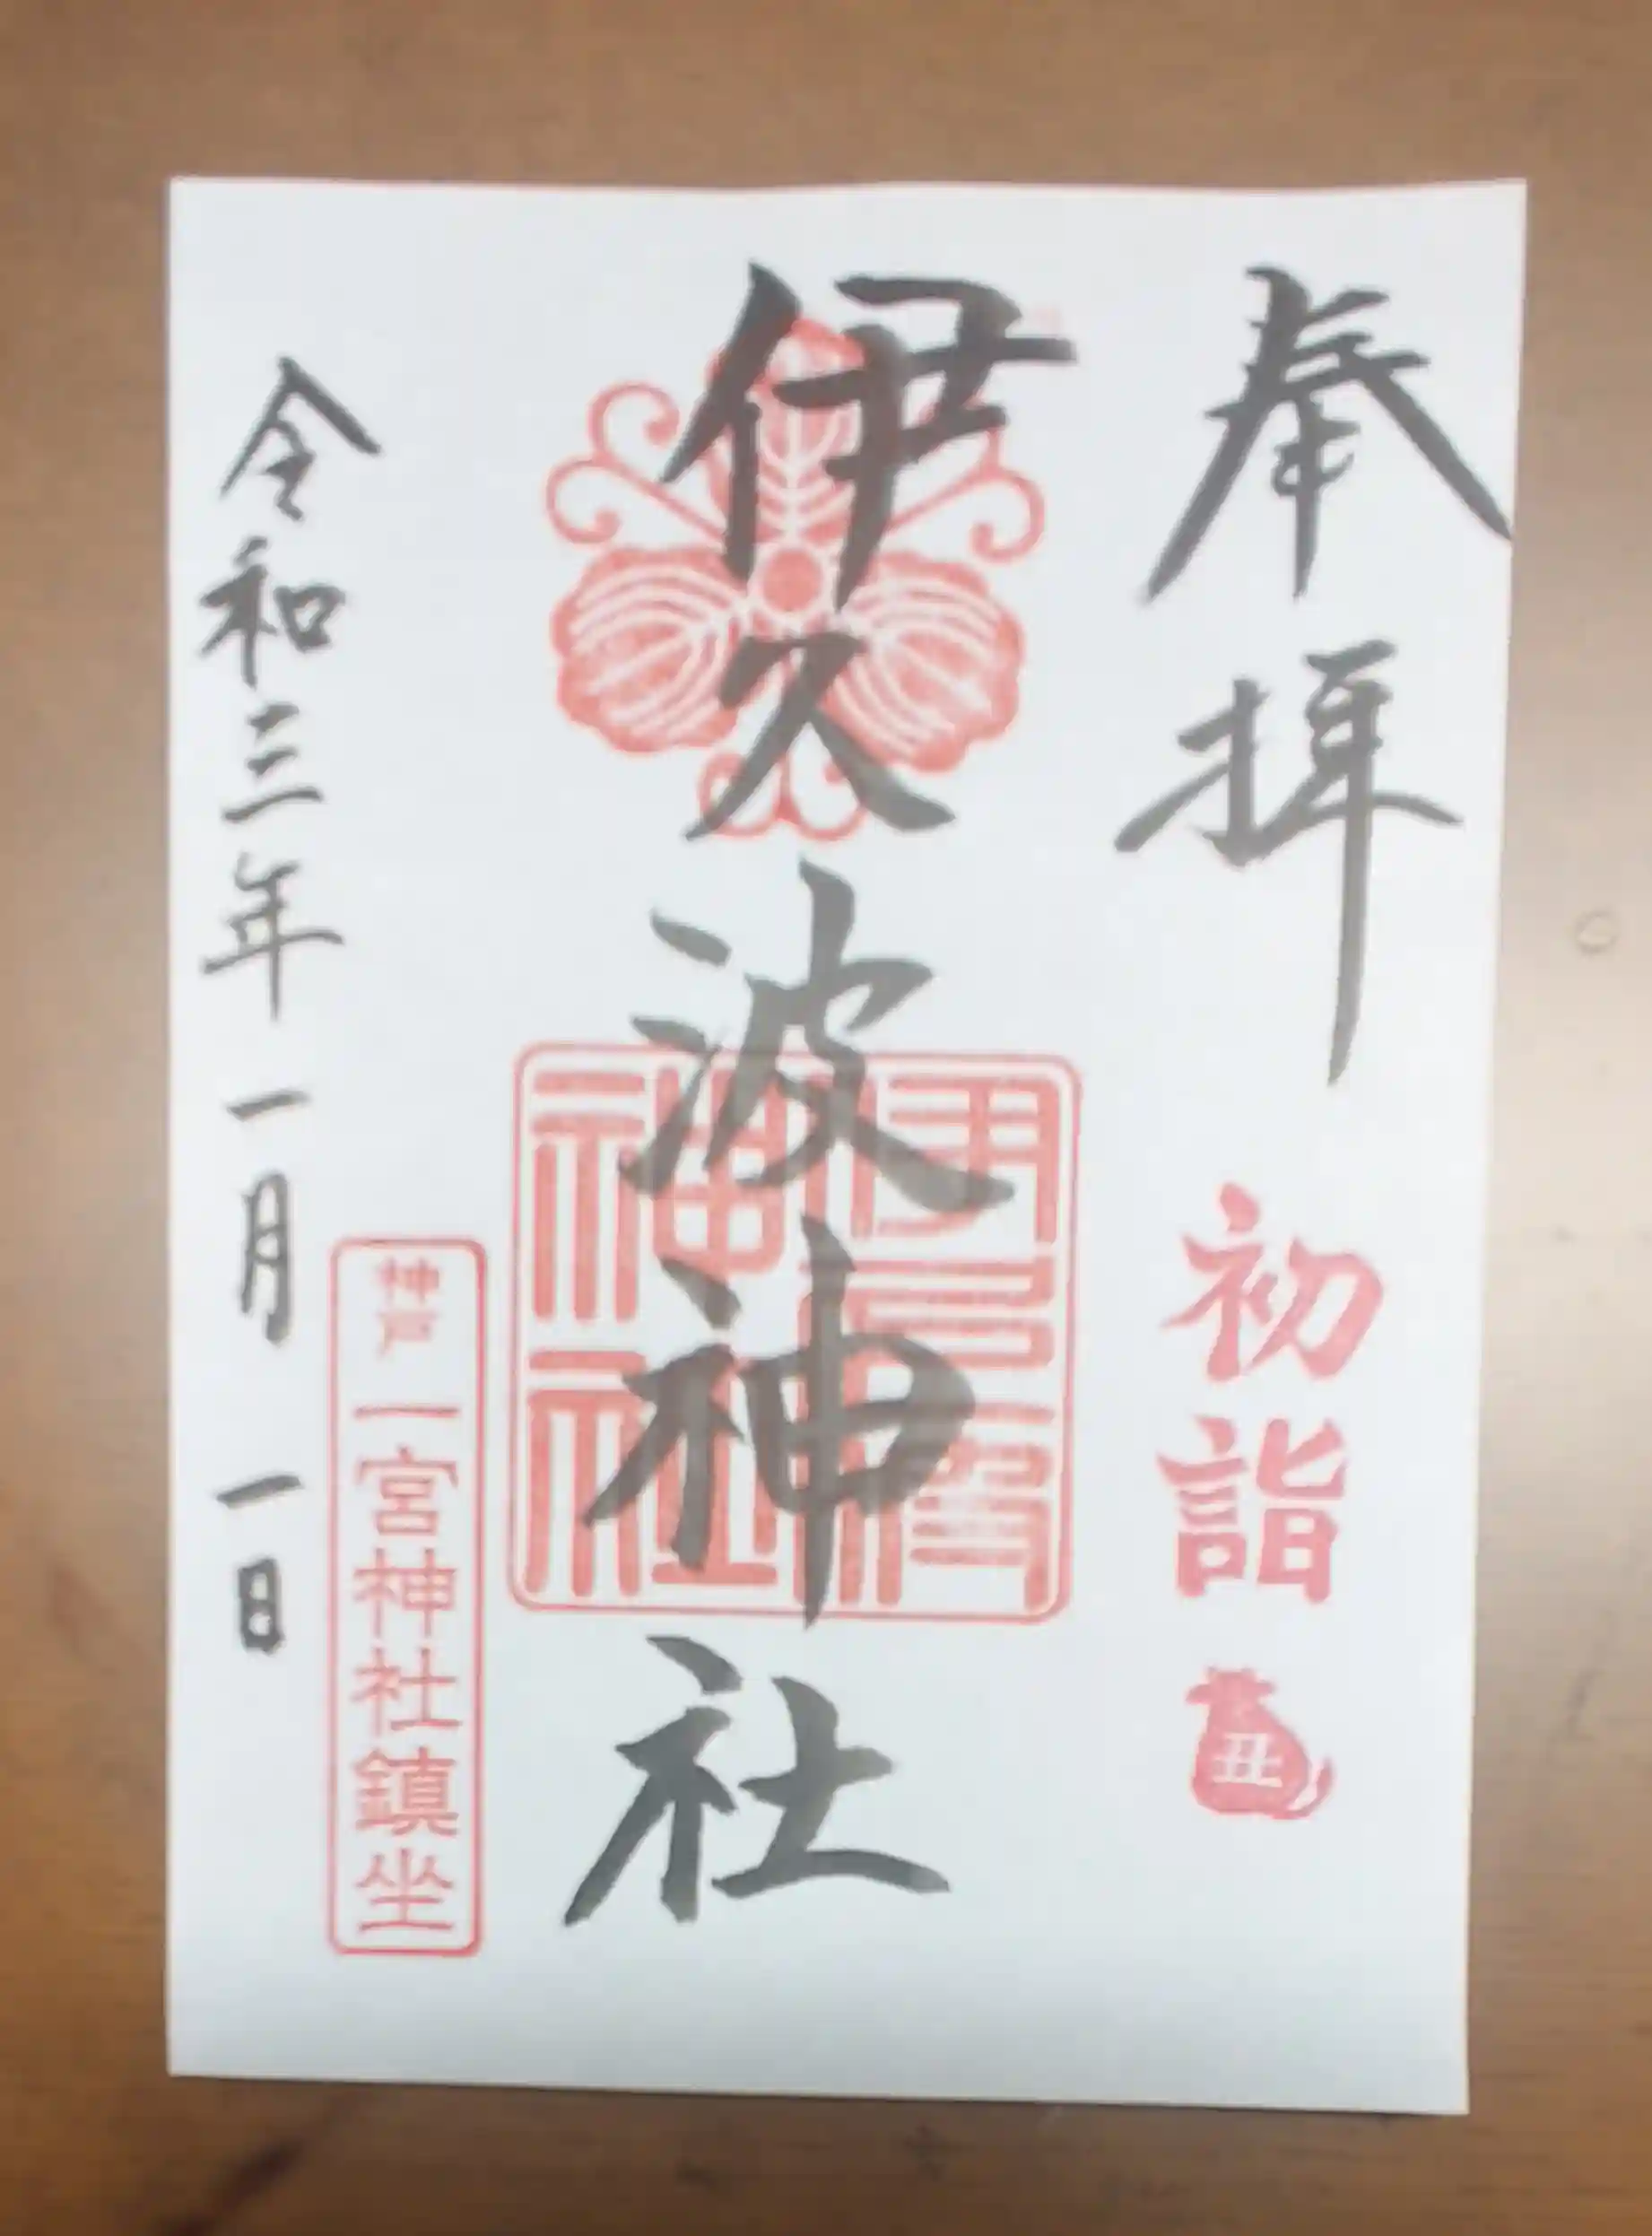 奉拝
初詣
丑
伊久波神社
伊久波神社
神戸
一宮神社鎮坐
令和三年一月一日